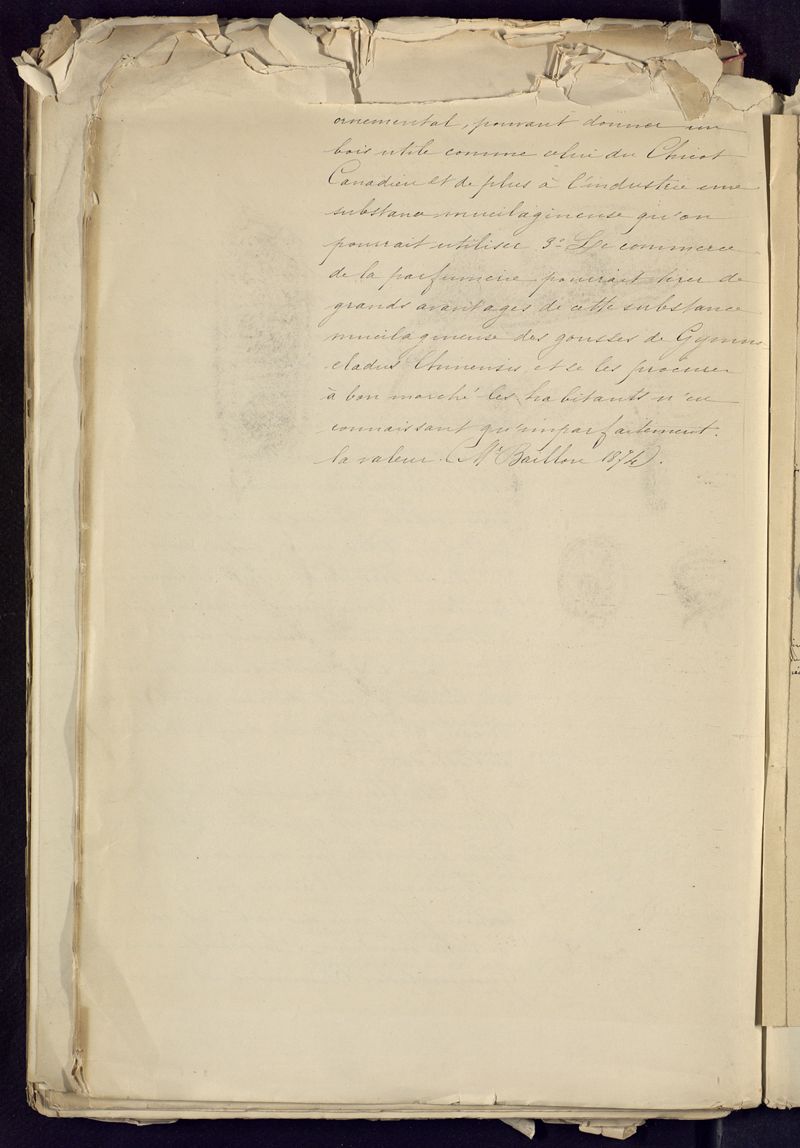 ornemental, pouvant donner un
bois utile comme celui du Chicot
Canadien et de plus à l'industrie une
substance mucilagineuse qu'on
pourrait utiliser 3º Le commerce
de la parfumerie pourrait tirer de
grands avantages de cette substance
mucilagineuse des gousses de Gymno-
cladus Chinensis et se les procurer
à bon marché les habitants n'en
connaissant qu'imparfaitement.
la valeur. (Mr Baillon 1874).